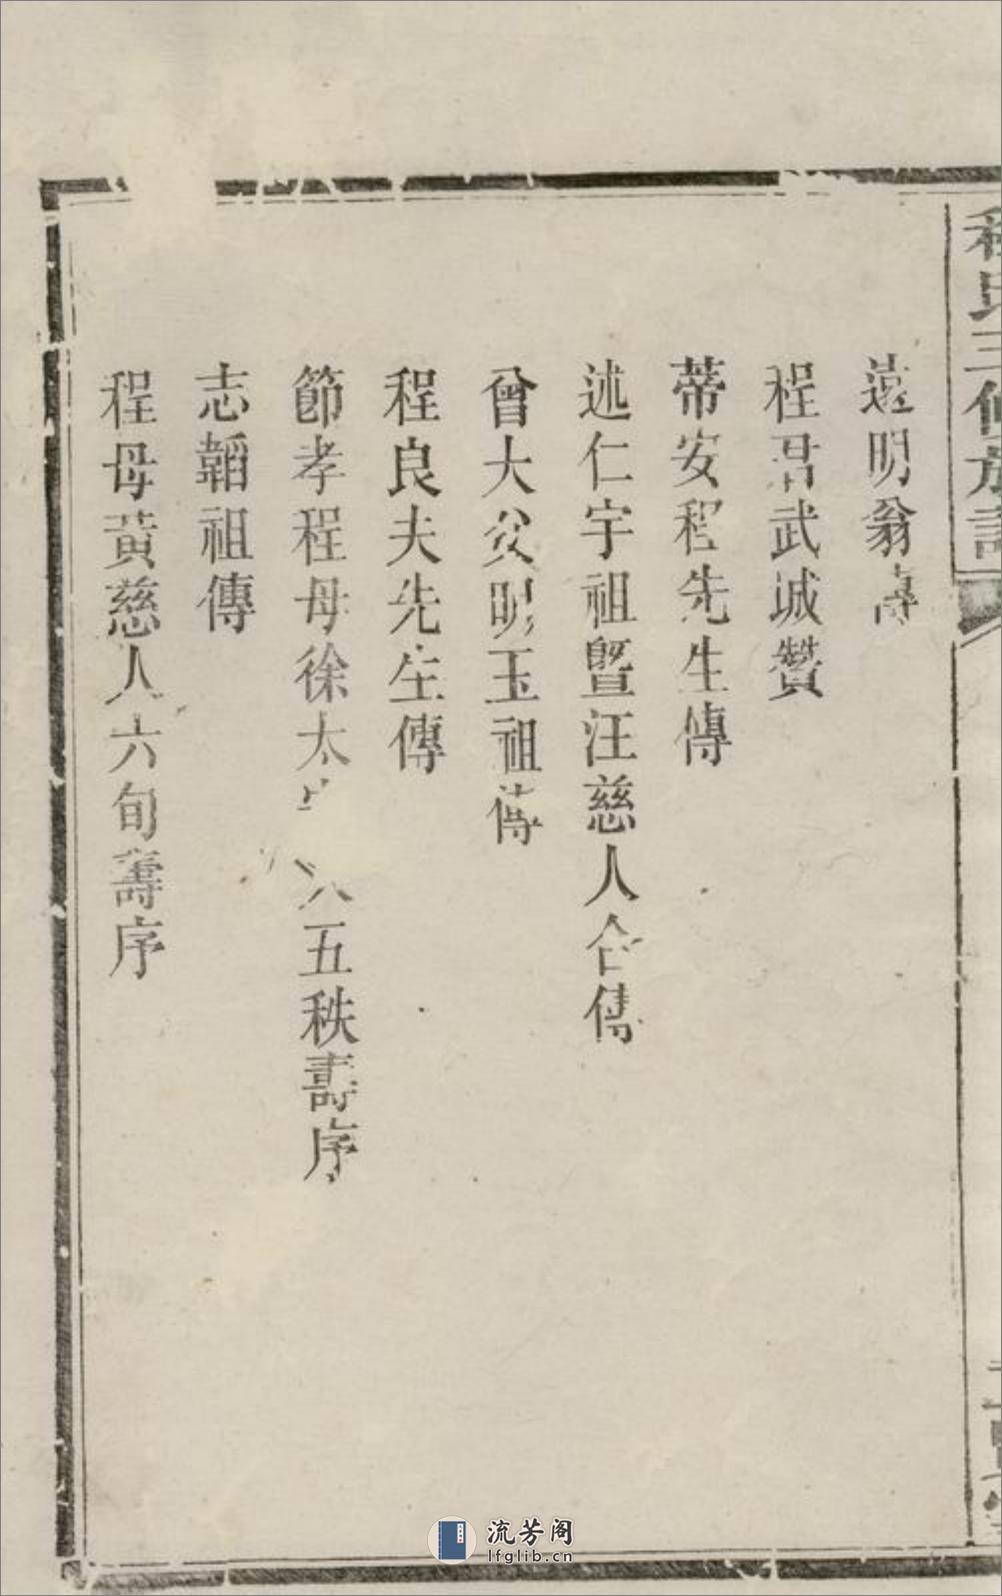 程氏三修族譜
遠明翁傳
程君武誠贊
蒂安程先生傳
述仁宇祖暨汪慈人合傳
曾大父明玉祖傳
程良夫先生傳
節孝程母徐太 八五秩壽序
志韜祖傳
程母黃慈人六旬壽序
流芳阁
lfglib.cn